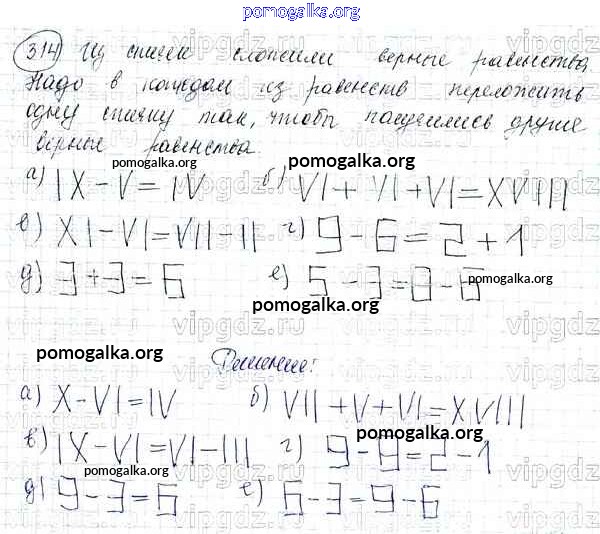 pomogalka.org
314) Из спичек сложили верные равенства.
Надо в каждом из равенств переложить
одну спичку так, чтобы получились другие
верные равенства.
pomogalka.org pomogalka.org
а) IX - V = IV б) VI + VI + VI = XVIII
в) XI - VI = VII - II г) 9 - 6 = 2 + 1
pomogalka.org
д) 3 + 3 = 6 е) 5 - 3 = 8 - 6
pomogalka.org
pomogalka.org
Решение:
а) X - VI = IV б) VII + V + VI = XVIII
в) IX - VI = VI - III г) 9 - 9 = 2 - 1
pomogalka.org
pomogalka.org
д) 9 - 3 = 6 е) 6 - 3 = 9 - 6
pomogalka.org
vipgdz.ru